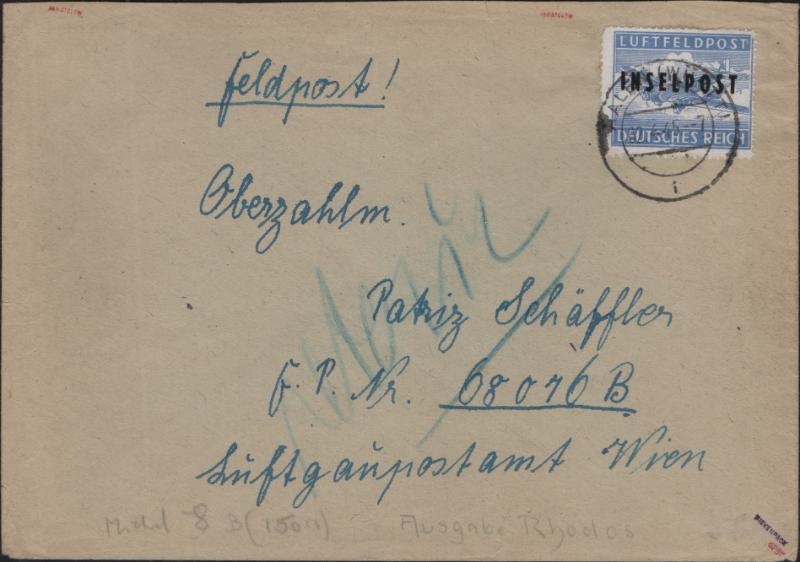 LUFTFELDPOST
INSELPOST
DEUTSCHES REICH
i
Feldpost!
Oberzahlm.
Patriz Schäffler
F. P. Nr. 68076 B
Luftgaupostamt Wien
Michel 8 B
Ausgabe Rhodos